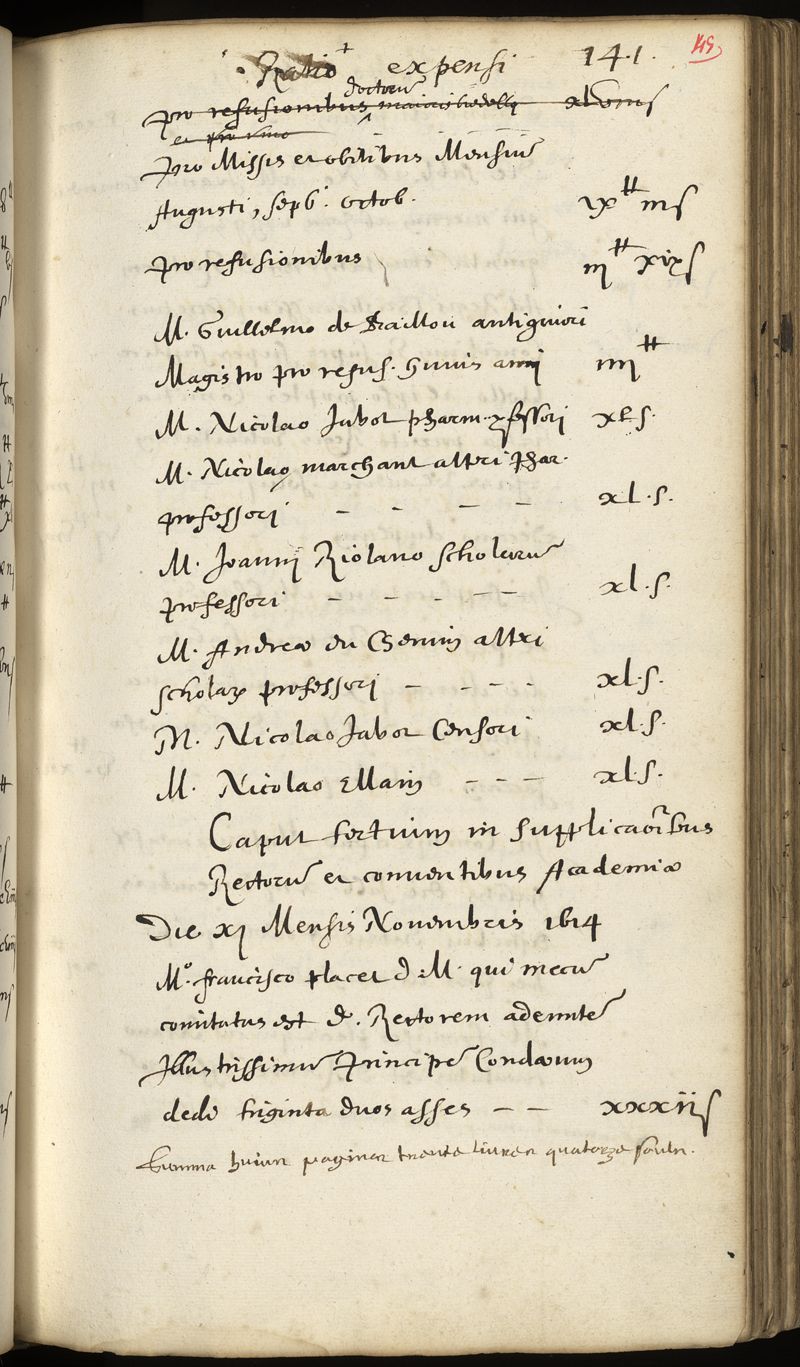 Ratio expensi 141. 145
doctorũ
pro refusionibus maioris bidelli
et pro vino
Pro Missis et obitibus Mensiũ
Augusti, sepb. octob. ix ₶ iiis
Pro refusionibus iii ₶ xixs
M. Guillelmo de Baillou antiquiori
Magistro pro refus. huius anni iiii ₶
M. Nicolao Jabot pharm. pfssori xl s.
M. Nicolao marchant alteri phar.
professori - - - - xl.s.
M. Joanni Riolano scholarũ
professori - - - - - xl.s.
M. Andreæ du Chemin alteri
scholaꝝ professori - - - - xl.s.
M. Nicolao Jabot Censori xl.s.
M. Nicolao Ellain - - - xl.s.
Caput tertium in supplicaõibus
Rectorũ et conventibus Academiæ
Die xi Mensis Novembris 1614
Mº. francisco placet d.M. qui mecũ
comitatus est d. Rectorem adeuntẽ
Illustrissimũ Principẽ Condæum
dedi triginta duos asses - - xxxiis
Summa huius paginæ trente livres quatorze soulz.